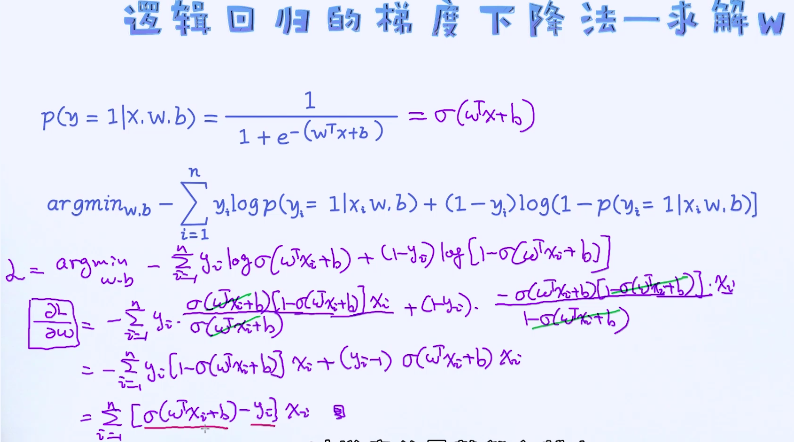 逻辑回归的梯度下降法—求解w
p(y = 1|x.w.b) = 1 / (1 + e^-(wᵀx+b)) = σ(wᵀx+b)
argmin_w.b - ∑_{i=1}^{n} y_i log p(y_i = 1|x_i w.b) + (1 - y_i) log(1 - p(y_i = 1|x_i w.b)]
L = argmin_w.b - ∑_{i=1}^{n} y_i log σ(wᵀx_i+b) + (1-y_i) log[1-σ(wᵀx_i+b)]
∂L/∂w = - ∑_{i=1}^{n} y_i · σ(wᵀx_i+b)[1-σ(wᵀx_i+b)] x_i / σ(wᵀx_i+b) + (1-y_i) · -σ(wᵀx_i+b)[1-σ(wᵀx_i+b)] · x_i / 1-σ(wᵀx_i+b)
= - ∑_{i=1}^{n} y_i [1-σ(wᵀx_i+b)] x_i + (y_i-1) σ(wᵀx_i+b) x_i
= ∑_{i=1}^{n} [σ(wᵀx_i+b) - y_i] x_i